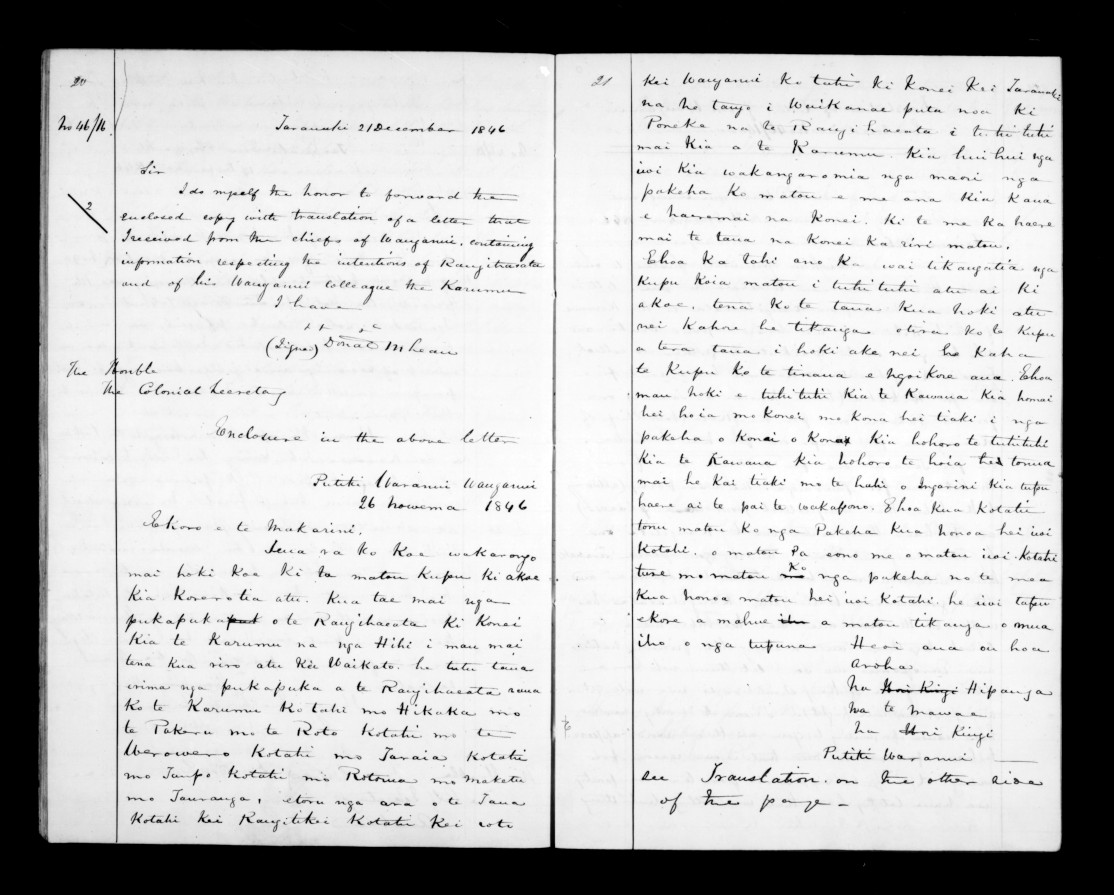 20
No 46/16.
Taranaki 21 December 1846
Sir
I do myself the honor to forward the
2
enclosed copy with translation of a letter that
I received from the chiefs of Wanganui, containing
information respecting the intentions of Rangihaeata
and of his Wanganui colleague the Karumu
I have
(Signed) Donal McLean
The Honble
The Colonial Secretary
Enclosure in the above letter
Putiki, Waranui Wanganui
26 Nowema 1846
E hoa e te Makarini,
Tena ra ko koe wakarongo
mai hoki koe ki ta matou kupu ki akoe
kia korerotia atu. Kua tae mai nga
pukapuka o te Rangihaeata ki Konei
kia te Karumu na nga Hihi i mau mai
tena kua riro atu kia Waikato. he tutu taua
erima nga pukapuka a te Rangihaeata raua
ko te Karumu Kotahi mo Hikaka mo
te Pakaru mo te Roto Kotahi mo te
Werowero Kotahi mo Taraia Kotahi
mo Taupo Kotahi mo Rotorua mo Maketu
mo Tauranga, etoru nga ara o te Taua
Kotahi kei Rangitikei Kotahi kei roto
21
kei Wanganui ko tuhi ki Konei kei Taranaki
na he tango i Waikanae puta noa ki
Poneke na te Rangihaeata i tuhituhi
mai kia a te Karumu. Kia huihui nga
iwi kia wakangaromia nga maori nga
pakeha ko matou e me ana kia kaua
e haeremai na Konei. Ki te me ka haere
mai te taua na Konei ka riri matou.
Ehoa ka tahi ano ka wai tikangatia nga
kupu koia matou i tuhituhi atu ai ki
akoe, tena ko te taua kua hoki atu
nei kahore he tikanga otira ko te kupu
a tera taua i hoki ake nei, he kaha
te kupu ko te tinana e ngoikore ana. Ehoa
mau hoki e tuhituhi kia te Kawana kia homai
hei hoia mo konei mo kona hei tiaki i nga
pakeha o konei o kona kia hohoro te tuhituhi
kia te Kawana kia hohoro te hoia tonua
mai, he kai tiaki mo te huhi o Ingarini kia tupu
haere ai te pai te wakapono. Ehoa kua kotahi
tonu matou ko nga Pakeha kua honoa hei iwi
kotahi, o matou Pa eono me o matou iwi. Kotahi
ture mo matou ko nga pakeha no te mea
kua honoa matou hei iwi kotahi, he iwi tapu
ekore e mahue a matou tikanga o mua
iho o nga tupuna Heoi ana ou hoa
aroha
Na Hori Kingi Hipango
Na te Mawae
Na Hori Kingi
Putiki Waranui
see Translation on the other side
of the page